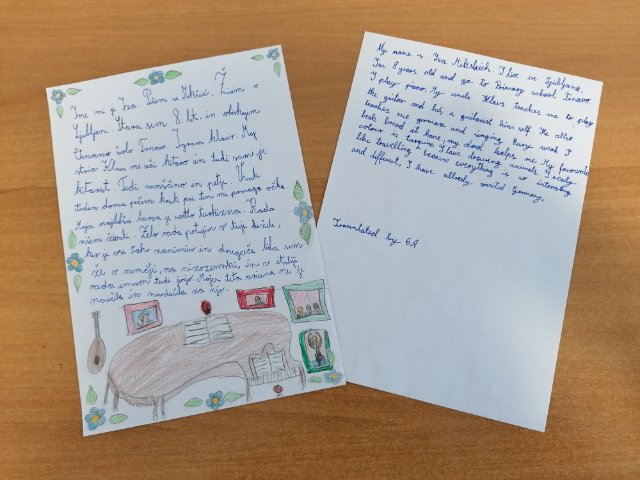 Ime mi je Iza Pišem se Mikšič. Živim v
Ljubljani. Stara sem 8 let. in obiskujem
osnovno šolo Trnovo. Igram klavir. Moj
stric Klaus me uči kitaro in tudi sam je
kitarist. Tudi nemščino in petje. Vsak
teden doma pečem kruh pri tem mi pomaga očka
Moja najljubša barva je svetlo turkizna. Rada
rišem živali. Zelo rada potujem v tuje dežele,
ker je vse tako zanimivo in drugače. Bila sem
že v nemčiji, na nizozemski, in v italiji
rada imam tudi jogo. Moja teta me je
naučila in navdušila za njo.
My name is Iza Mikšich. I live in Ljubljana.
I'm 8 years old and go to Primary school Trnovo.
I play piano. My uncle Klaus teaches me to play
the guitar and he's a guitarist him self. He also
teaches me german and singing. Every week I
bake bread at home, my dad helps me. My favourite
colour is turquise. I love drawing animals. I really
like travelling because everything is so interesting
and different, I have allredy visited Germany,
Translated by 6.A